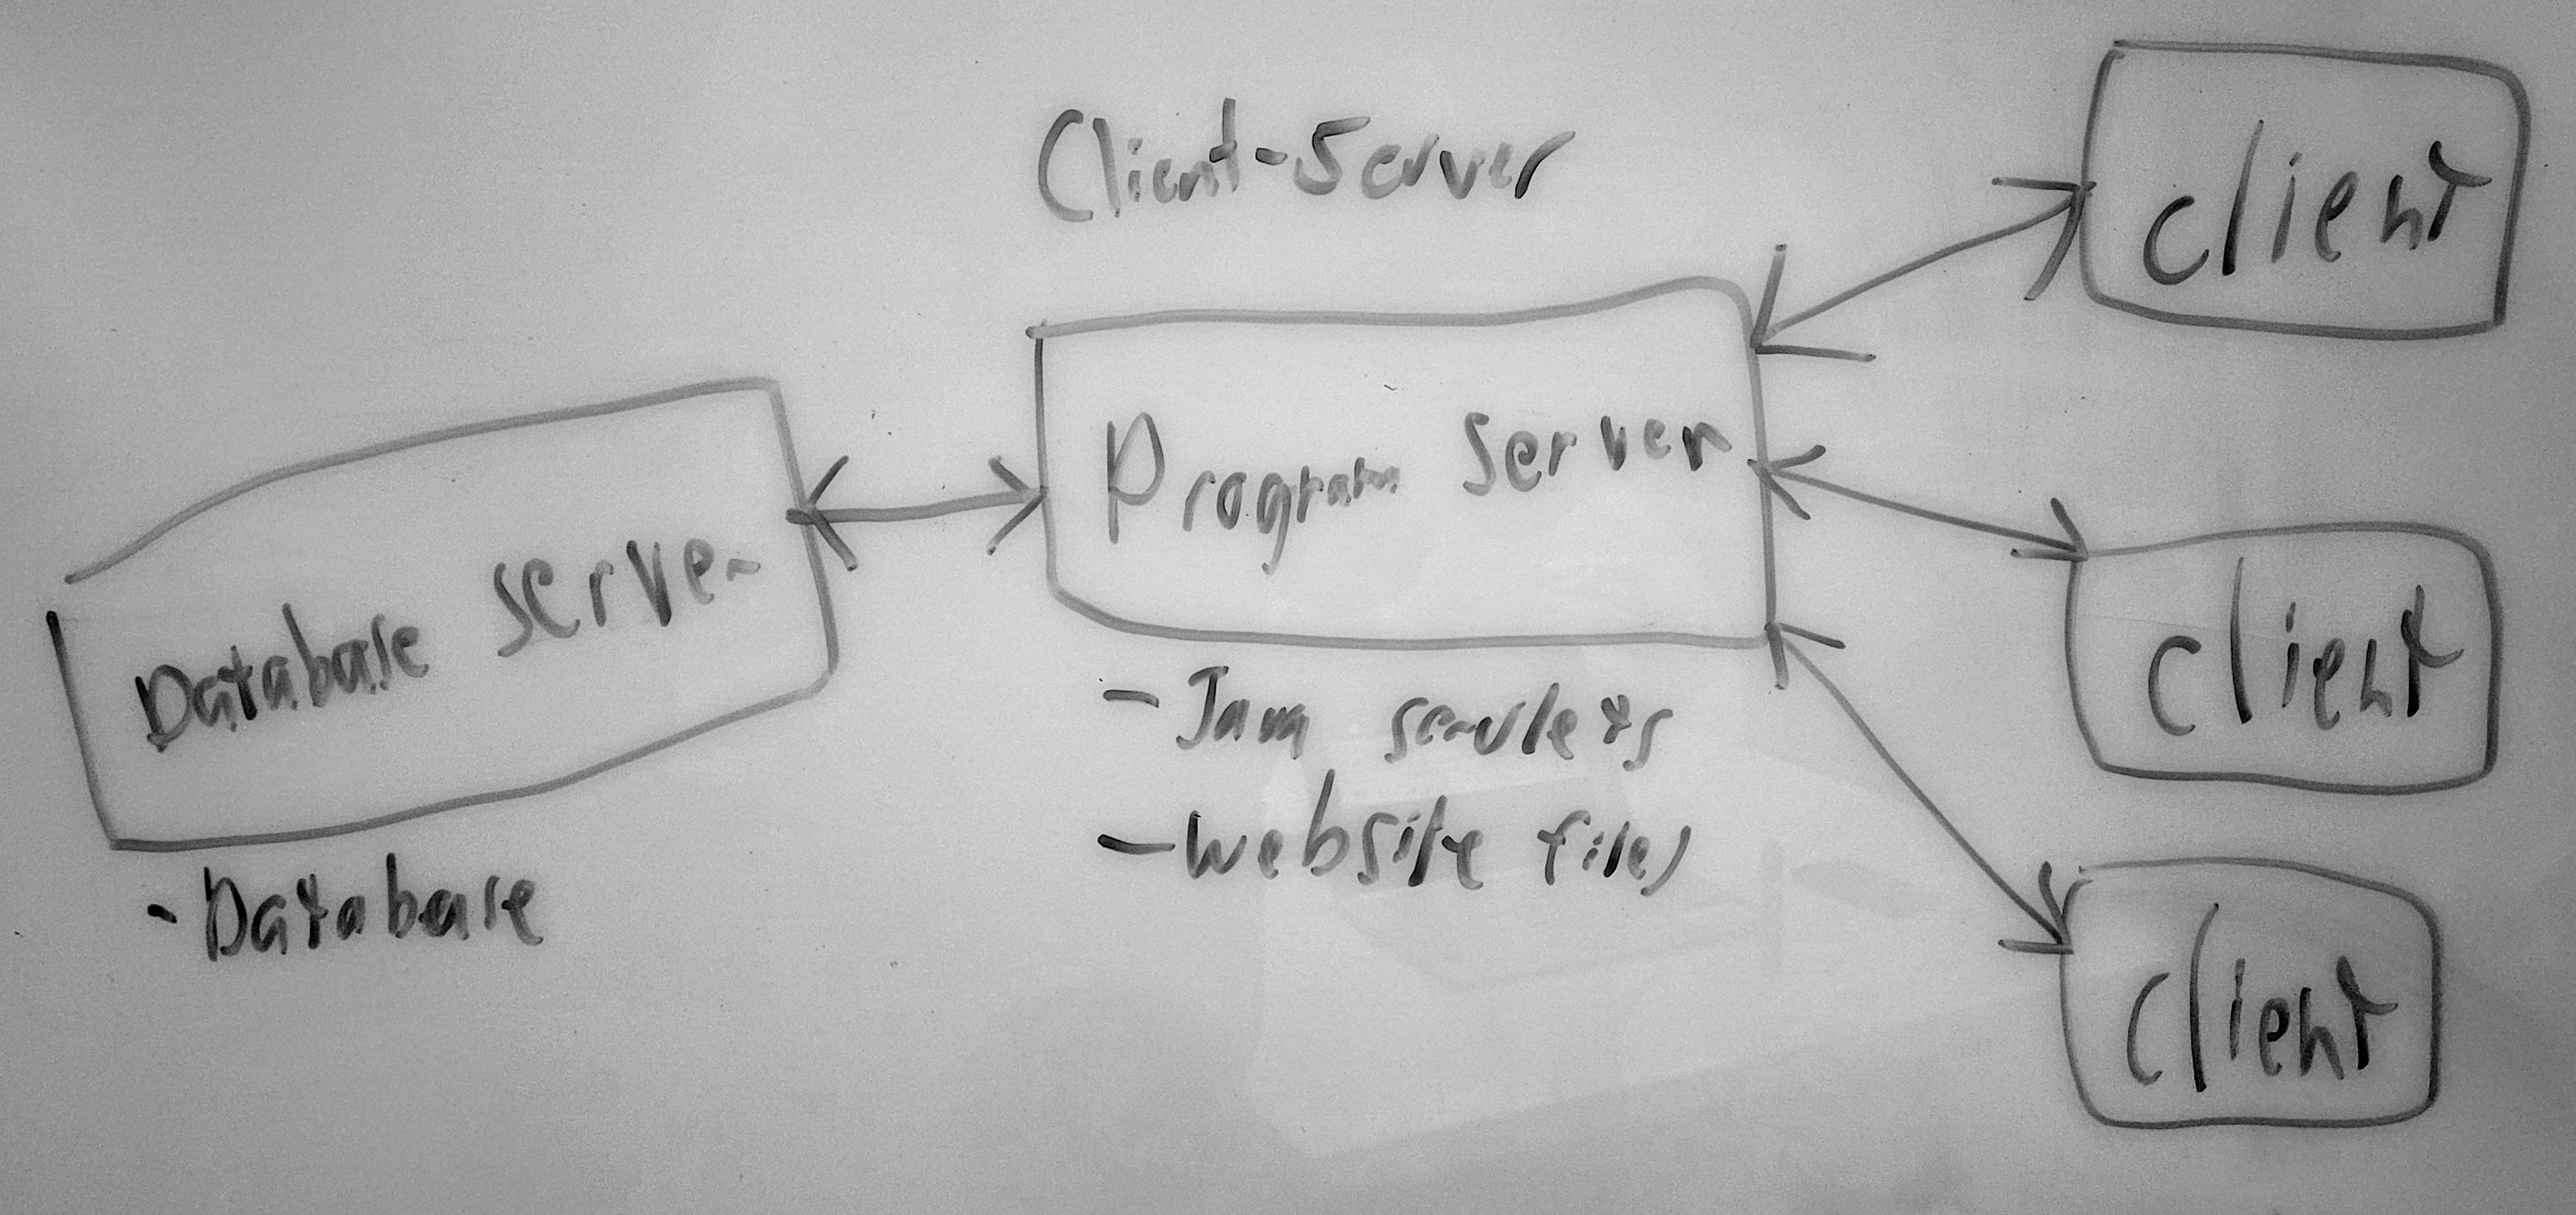 Client-Server
client
Program Server
Database server
client
- Java servlets
- website files
- Database
client